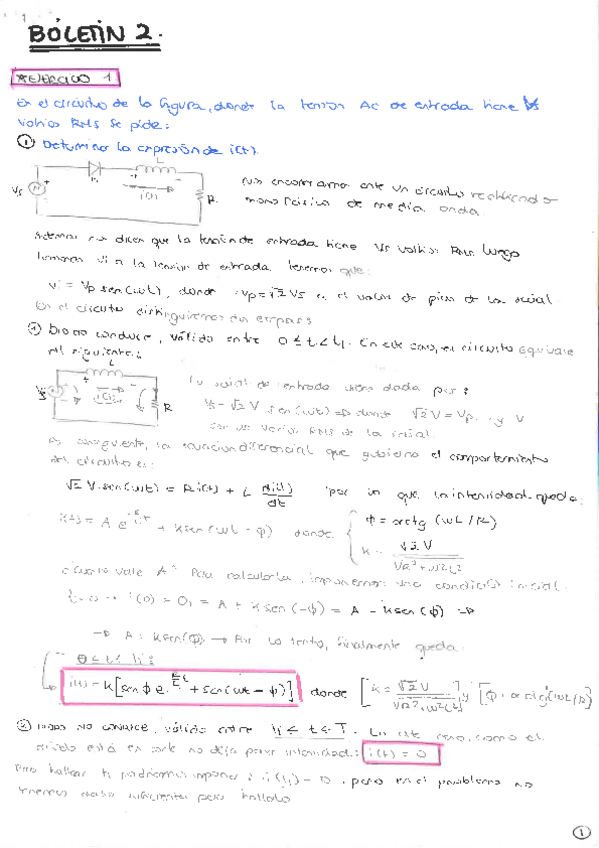 BOLETIN 2.
EJERCICIO 1
En el circuito de la figura, donde la tensión AC de entrada tiene Vs
voltios RMS se pide:
① Determina la expresión de i(t).
L
Vs
i(t)
R
Nos encontramos ante un circuito rectificador
monofásico de media onda
Además nos dicen que la tensión de entrada tiene Vs voltios RMS. Luego
llamamos vi a la tensión de entrada tenemos que:
vi = Vp sen(wt), donde Vp = √2 Vs es el valor de pico de la señal.
En el circuito distinguiremos dos etapas
① Diodo conduce, válido entre 0 ≤ t ≤ t1. En este caso, el circuito equivale
al siguiente:
L
Vs
i(t)
R
La señal de entrada viene dada por:
Vs = √2 V sen(wt) => donde √2 V = Vp y V
son los voltios RMS de la señal.
Por consiguiente, la ecuación diferencial que gobierna el comportamiento
del circuito es:
√2 V sen(wt) = R i(t) + L di(t)/dt por lo que la intensidad queda:
i(t) = A e + k sen(wt - φ) donde φ = arctg (wL/R)
k = √2 V / √R²+w²L²
cuánto vale A? Para calcularla, imponemos una condición inicial.
t = 0 → i(0) = 0 = A + k sen(-φ) = A - k sen(φ) =>
→ A = k sen(φ) → Por lo tanto, finalmente queda:
0 ≤ t ≤ t1:
i(t) = k[sen φ e + sen(wt - φ)] donde [k = √2 V / √R²+w²L²] y [φ = arctg(wL/R)]
② Diodo no conduce, válido entre t1 ≤ t ≤ T. En este caso, como el
diodo está en corte no deja pasar intensidad: i(t) = 0
Para hallar t1 podríamos imponer: i(t1) = 0, pero en el problema no
tenemos datos suficientes para hallarlo
①